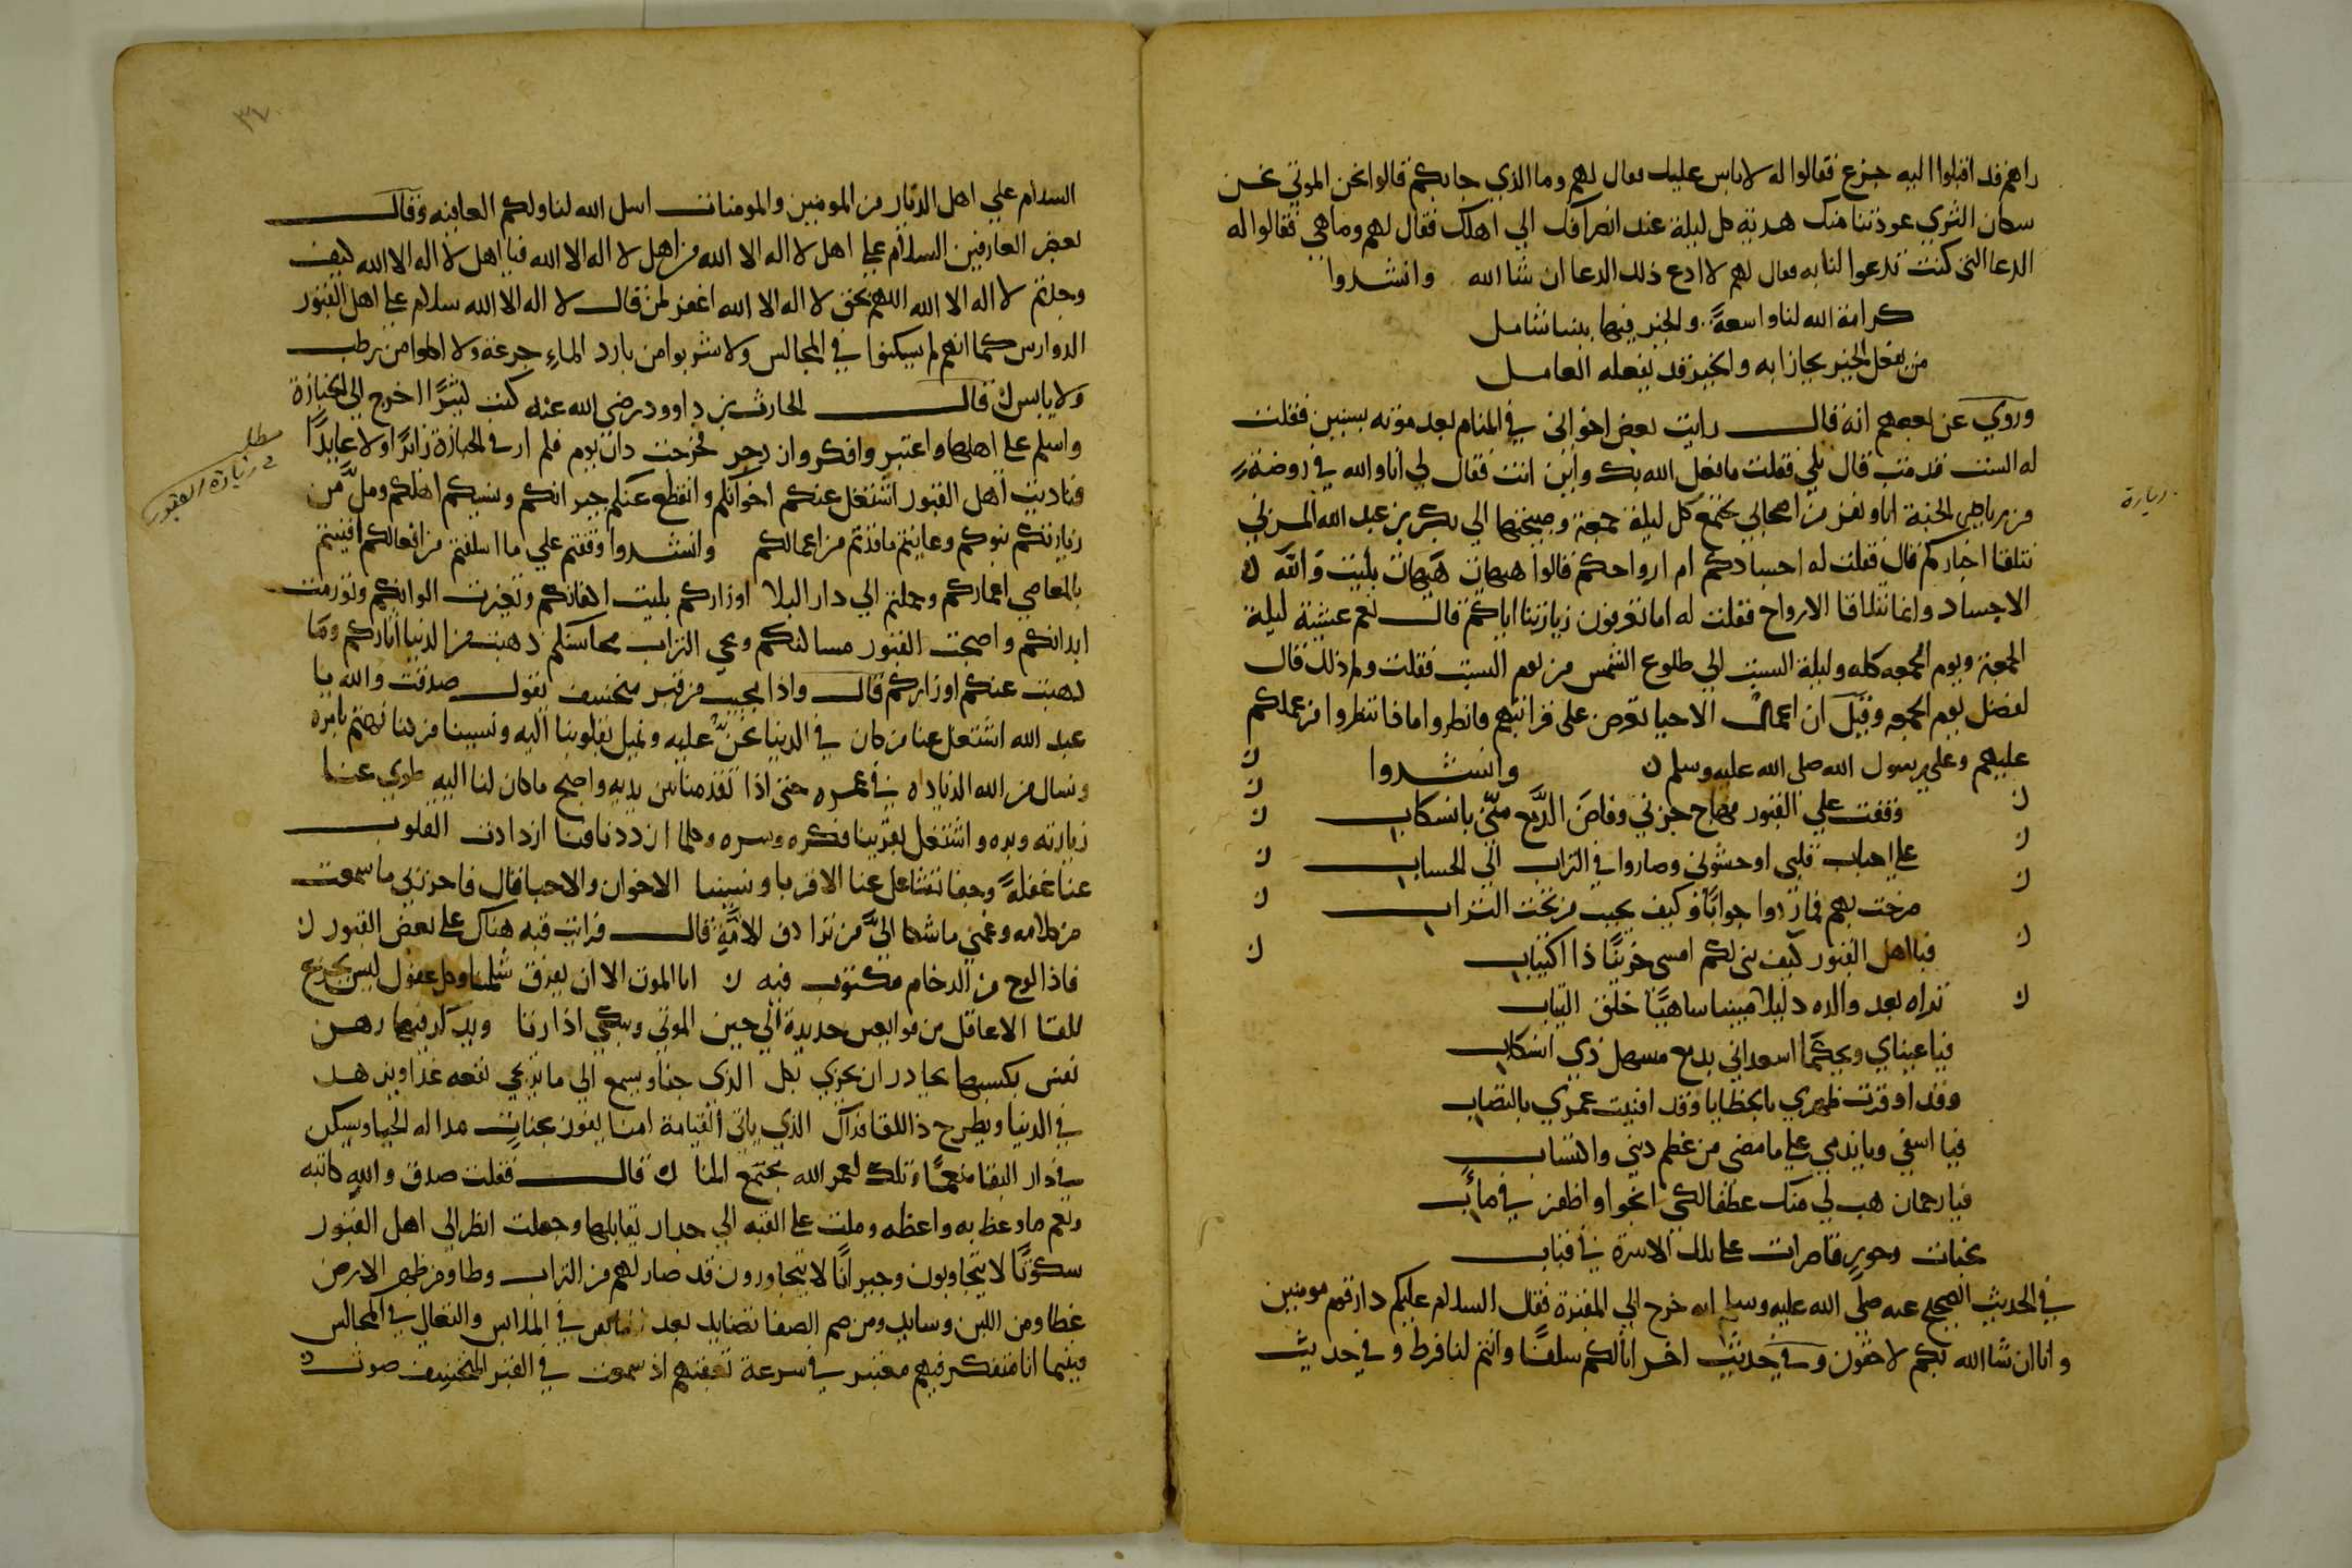 راهم قد اقبلوا اليه جزع فقالوا له لا باس عليك فقال لهم وما الذي جابكم قالوا نحن الموتي نحن
سكان الثري عودتنا منك هدية كل ليلة عند انصرافك الي اهلك فقال لهم وما هي فقالوا له
الدعا التي كنت تدعوا لنا به فقال لهم لا ادع ذلك الدعا ان شا الله وانشدوا
كرامة الله لنا واسعة والخير فيها بيننا شامل
من يفعل الخير يجازا به والخير قد يفعله العامل
وروي عن بعضهم انه قال رايت بعض اخواني في المنام بعد موته بسنين فقلت
له الست قد مت قال بلي فقلت ما فعل الله بك واين انت فقال لي انا والله في روضة
من رياض الجنة انا ونفر من اصحابي نجتمع كل ليلة جمعة وصبيحتها الي بكر بن عبد الله المزني
نتلقا اخباركم قال فقلت له اجسادكم ام ارواحكم قالوا هيهات هيهات بليت والله ن
الاجساد وانما تتلاقا الارواح فقلت له اما تعرفون زيارتنا اياكم قال نعم عشية ليلة
الجمعة ويوم الجمعه كله وليلة السبت الي طلوع الشمس من يوم السبت فقلت ولم ذلك قال
لفضل يوم الجمعه وقيل ان اعمال الاحيا تعرض علي قرابتهم فانظروا ماذا تنظروا من عملكم
عليهم وعلي رسول الله صلي الله عليه وسلم ن وانشدوا ن
ن وقفت علي القبور فهاج حزني وفاض الدمع مني بانسكاب ن
ن علي احباب قلبي اوحشوني وصاروا في التراب الي الحساب ن
ن صرخت بهم فما ردوا جوابا وكيف يجيب من تحت التراب ن
ن فيا اهل القبور كيف نزلكم امسي حزينا ذا اكتياب ن
ن تراه بعد والده ذليلا مهينا ساهيا خلق الثياب
فيا عيناي ويحكما اسعداني بدمع مسهل ذي انسكاب
وقد اوقرت ظهري بالخطايا وقد افنيت عمري بالتصاب
فيا اسفي ويا ندمي علي ما مضي من عظم ديني واكتساب
فيا رحمان هب لي منك عطفا لكي انجوا واظفر في مآب
بجنات وحور قاصرات علي تلك الاسرة في قباب
في الحديث الصحيح عنه صلي الله عليه وسلم انه خرج الي المقبرة فقال السلام عليكم دار قوم مومنين
وانا ان شا الله بكم لاحقون وفي حديث اخر انا لكم سلفا وانتم لنا فرط وفي حديث
زيارة
٣٧
السلام علي اهل الديار من المومنين والمومنات اسل الله لنا ولكم العافيه وقال
بعض العارفين السلام علي اهل لا اله الا الله من اهل لا اله الا الله فيا اهل لا اله الا الله كيف
وجدتم لا اله الا الله اللهم بحق لا اله الا الله اغفر لمن قال لا اله الا الله سلام علي اهل القبور
الدوارس كما انهم لم يسكنوا في المجالس ولا شربوا من بارد الماء جرعة ولا اكلوا من رطب
ولا يابس ن قال الحارث بن داوود رضي الله عنه كنت كثيرا اخرج الي الجنازة
واسلم علي اهلها واعتبر وافكر فخرجت ذات يوم فلم ار في الجبازة زائرا ولا عايدا
فناديت اهل القبور اشتغل عنكم اخوانكم وانقطع عنكم جيرانكم ونسيكم اهلكم ومل من
زيارتكم بنوكم وعاينتم ما قدتم من اعمالكم وانشدوا وقفتم علي ما اسلفتم من افعالكم افنيتم
بالمعاصي اعماركم وحملتم الي دار البلا اوزاركم بليت اكفانكم وتغيرت الوانكم وتورمت
ابدانكم واصبحت القبور مسالنكم ومحي التراب محاسنكم ذهبت من الدنيا اثاركم وما
ذهبت عنكم اوزاركم قال واذا بمجيب من قبر منخسف يقول صدقت والله يا
عبد الله اشتغل عنا من كان في الدنيا نحن عليه ونميل بقلوبنا اليه ونسينا من كنا نهتم بامره
ونسال من الله الزياده في عمره حتي اذا تقدمنا بين يديه واصبح ما كان لنا اليه طوي عنا
زيارته وبره واشتغل بغيرنا فكره وسره وكلما ازددنا فنا ازدادت القلوب
عنا غفلة وجفا تتشاغل عنا الاقربا ونسينا الاخوان والاحبا قال فاحزنني ما سمعت
من كلامه وغمني ما شكا الي من ترادف الامة قال فرايت قبه هناك علي بعض القبور ن
فاذا لوح من الرخام مكتوب فيه ن اما الموت الا ان يفرق شملنا وكل عقول ليس يجزع
للقا الا عاقل من مواليه حديدة الي حين الموتي ويبكي اذا رنا ويدكر فيها رهن
نفس بكسبها يحاذر ان يجزي بكل الذي جنا ويسمع الي ما يرتجي نفعه غدا ويزهد
في الدنيا ويطرح ذا اللقا فذاك الذي ياتي القيامة امنا يفوز بجنات مداله الحيا ويسكن
في دار البقا منعما وتلك لعمر الله مجتمع المنا ن قال فقلت صدق والله كاتبه
ونعم ما وعظ به واعظه وملت علي القبه الي جدار تقابلها وجعلت انظر الي اهل القبور
سكوتا لا يتجاوبون وجيرانا لا يتجاورون قد صار لهم من التراب وطا ومن ظهر الارض
غطا ومن اللبن وسايد ومن صم الصفا نضايد بعد في الملابس والتعالي في المجالس
فبينما انا متفكر فيهم معتبر في سرعة اذ سمعت في القبر المنخسف صوت ن
مطلب
في زيارة القبور